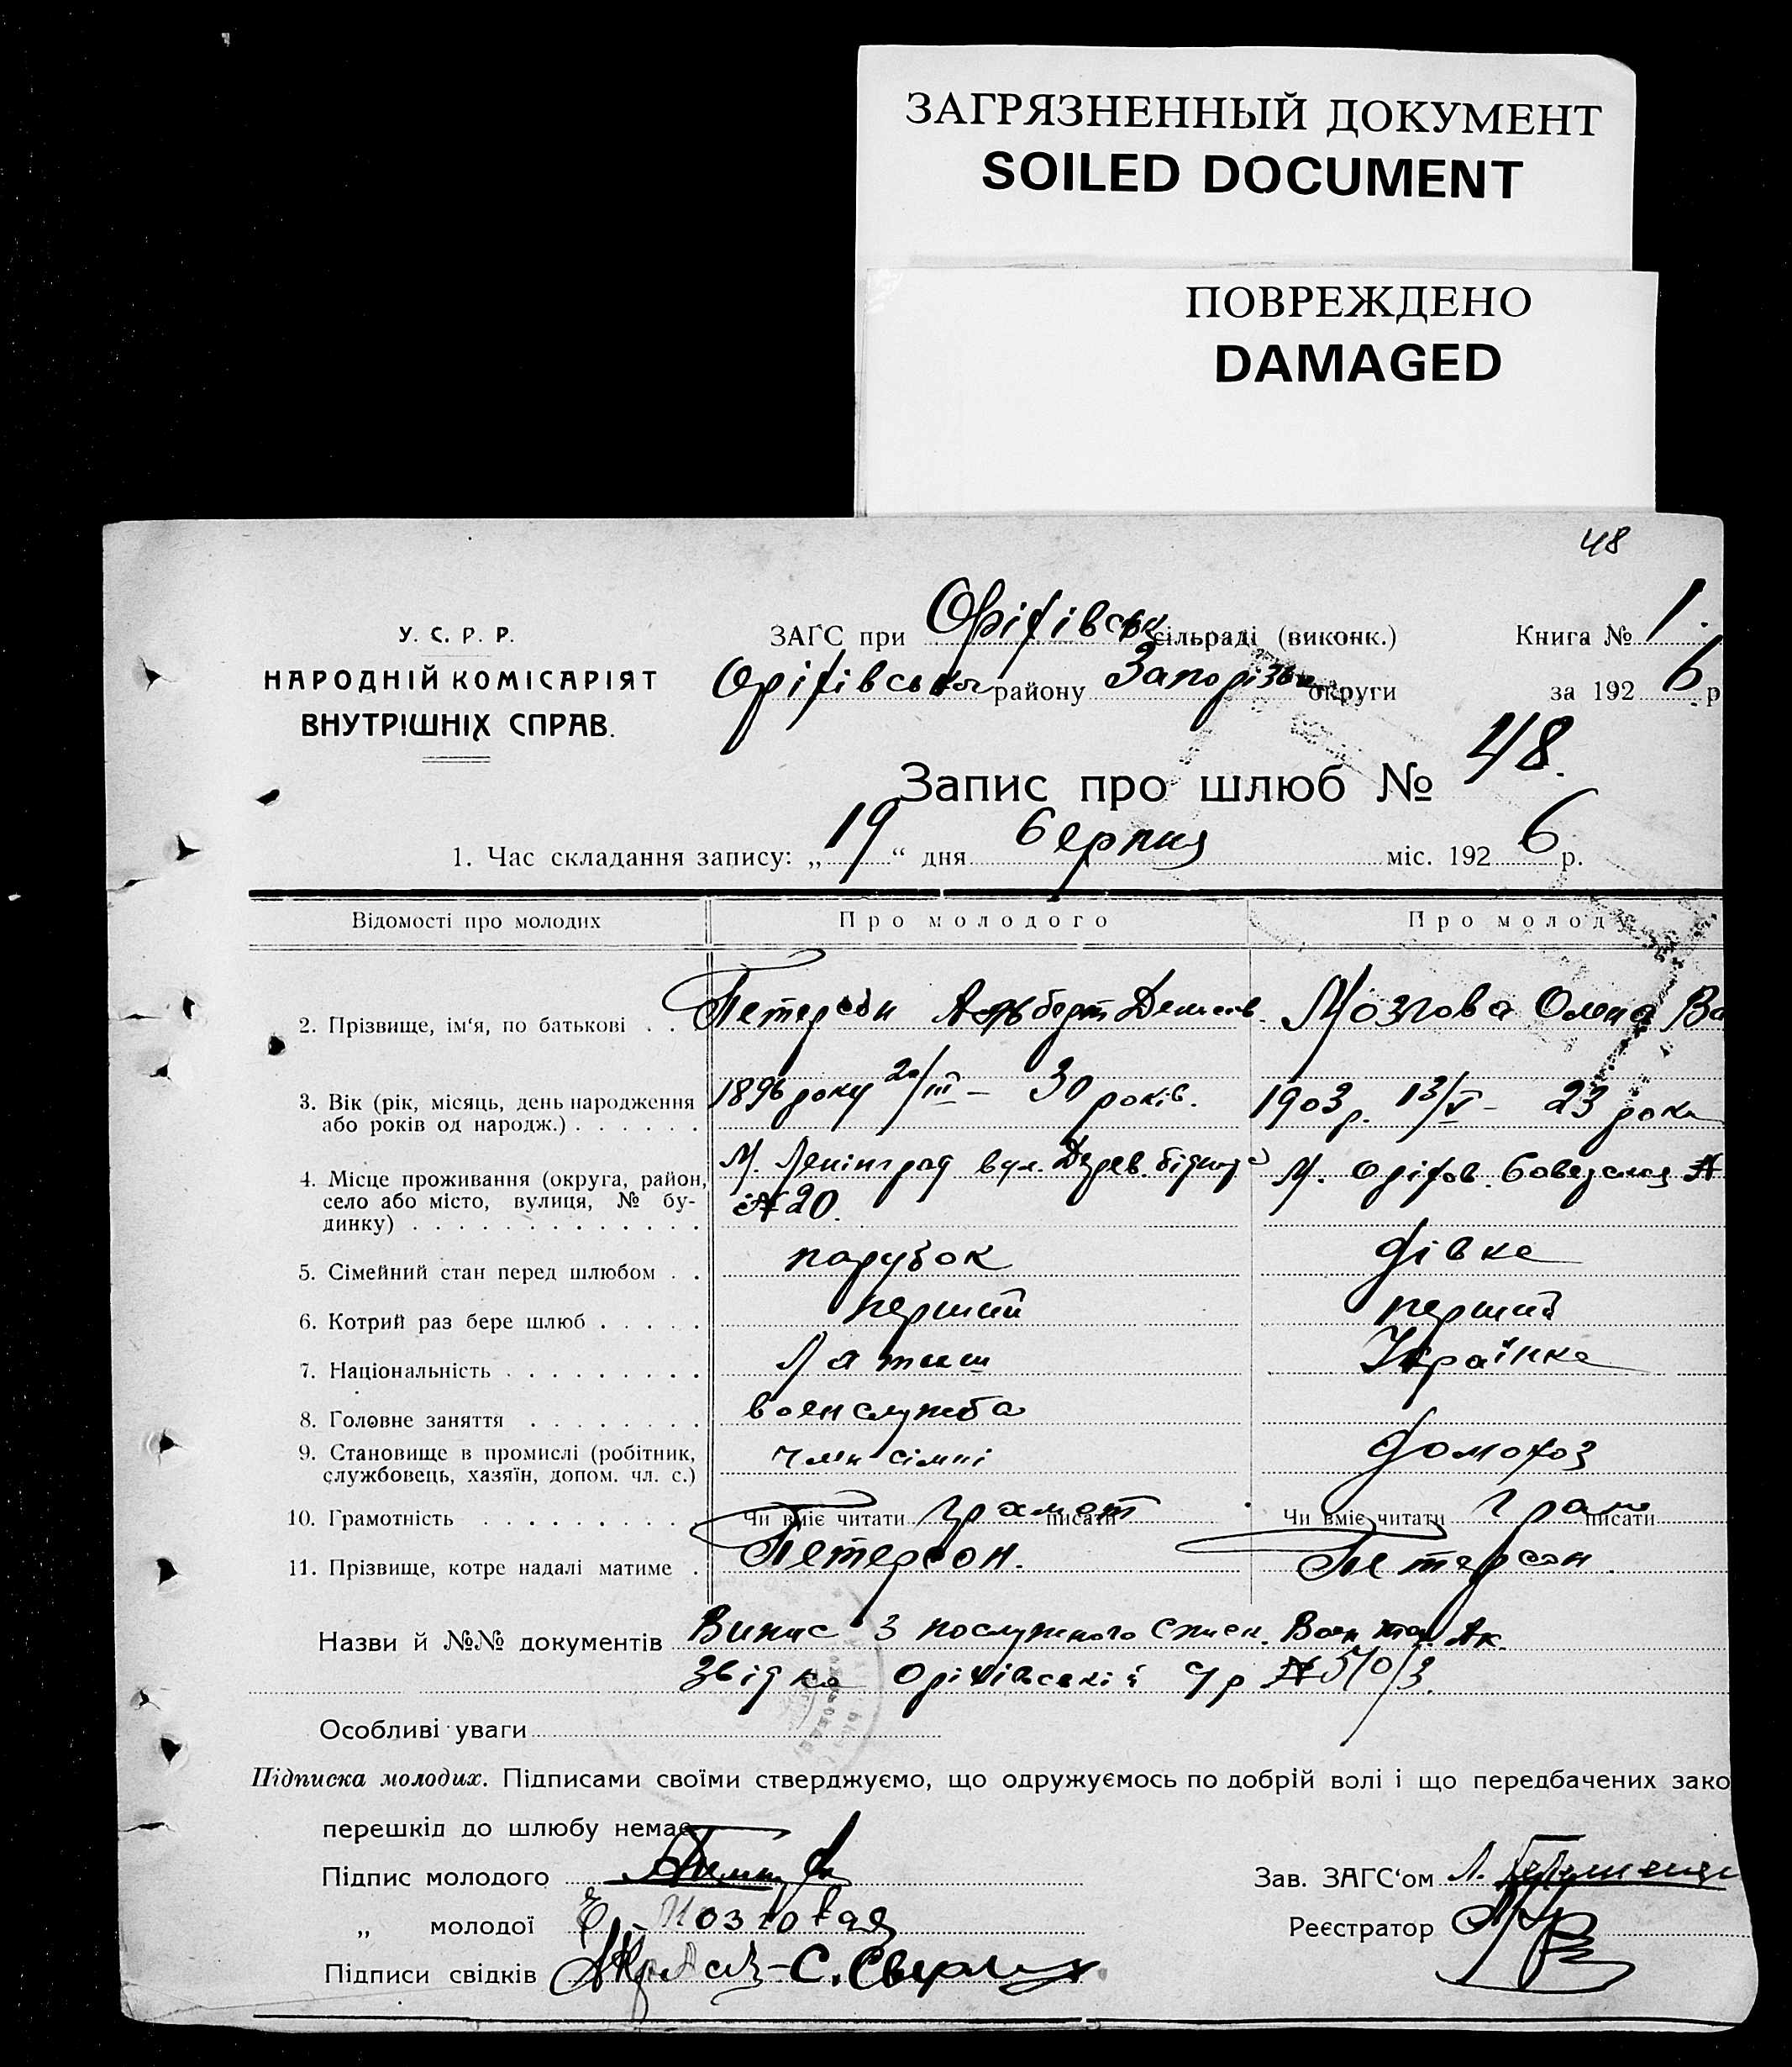 ЗАГРЯЗНЕННЫЙ ДОКУМЕНТ
SOILED DOCUMENT
ПОВРЕЖДЕНО
DAMAGED
48
У. С. Р. Р.
НАРОДНІЙ КОМІСАРІЯТ
ВНУТРІШНІХ СПРАВ.
ЗАГС при Оріхівськ сільраді (виконк.) Книга № 1.
Оріхівськог району Запорізьк округи за 192 6 р
Запис про шлюб № 48.
1. Час складання запису: „ 19 “ дня Серпня міс. 192 6 р.
Відомості про молодих Про молодого Про молоду
2. Прізвище, ім'я, по батькові . . Петерсон Альберт Денисов. Мозгова Олена Ва
3. Вік (рік, місяць, день народження або років од народж.) . . . . . . 1896 року 20/III – 30 років. 1903 р. 13/V – 23 роки
4. Місце проживання (округа, район, село або місто, вулиця, № будинку) . . . . . . . . . . . . . М. Ленінград вул. Дерев. бідноти № 20. М. Оріхов. Совецкая №
5. Сімейний стан перед шлюбом . . парубок дівка
6. Котрий раз бере шлюб . . . . . перший перший
7. Національність . . . . . . . . . Латиш Українка
8. Головне заняття . . . . . . . воєнслужба
9. Становище в промислі (робітник, службовець, хазяїн, допом. чл. с.) член сімпі домохоз
10. Грамотність . . . . . . . . . . Чи вміє читати грамот писати Чи вміє читати грам писати
11. Прізвище, котре надалі матиме . Петерсон. Петерсон
Назви й №№ документів Випис з послужного списк. Воен Ак.
Звідка Оріхівській № 540/3.
Особливі уваги
Підписка молодих. Підписами своїми стверджуємо, що одружуємось по добрій волі і що передбачених зако
перешкід до шлюбу немає
Підпис молодого Зав. ЗАГС'ом Л.
„ молодої Е. Мозговая Реєстратор
Підписи свідків